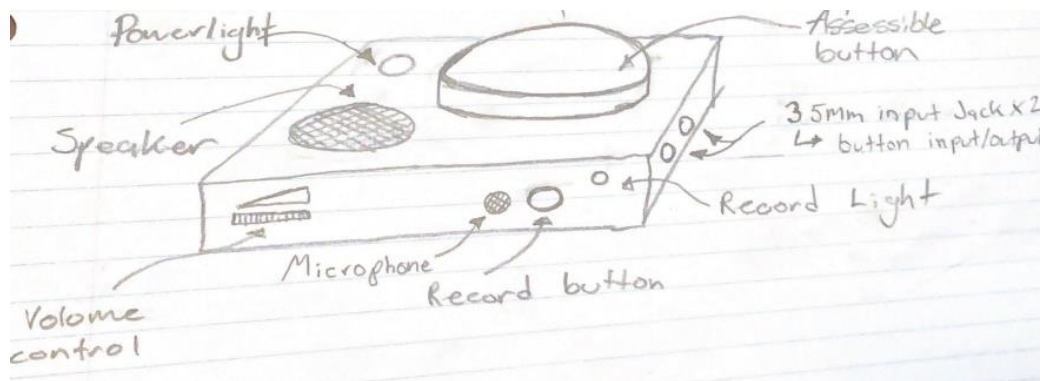 Powerlight
Assessible
button
Speaker
3 5mm input Jack x2
↳ button input/output
Record Light
Microphone
Record button
Volome
control